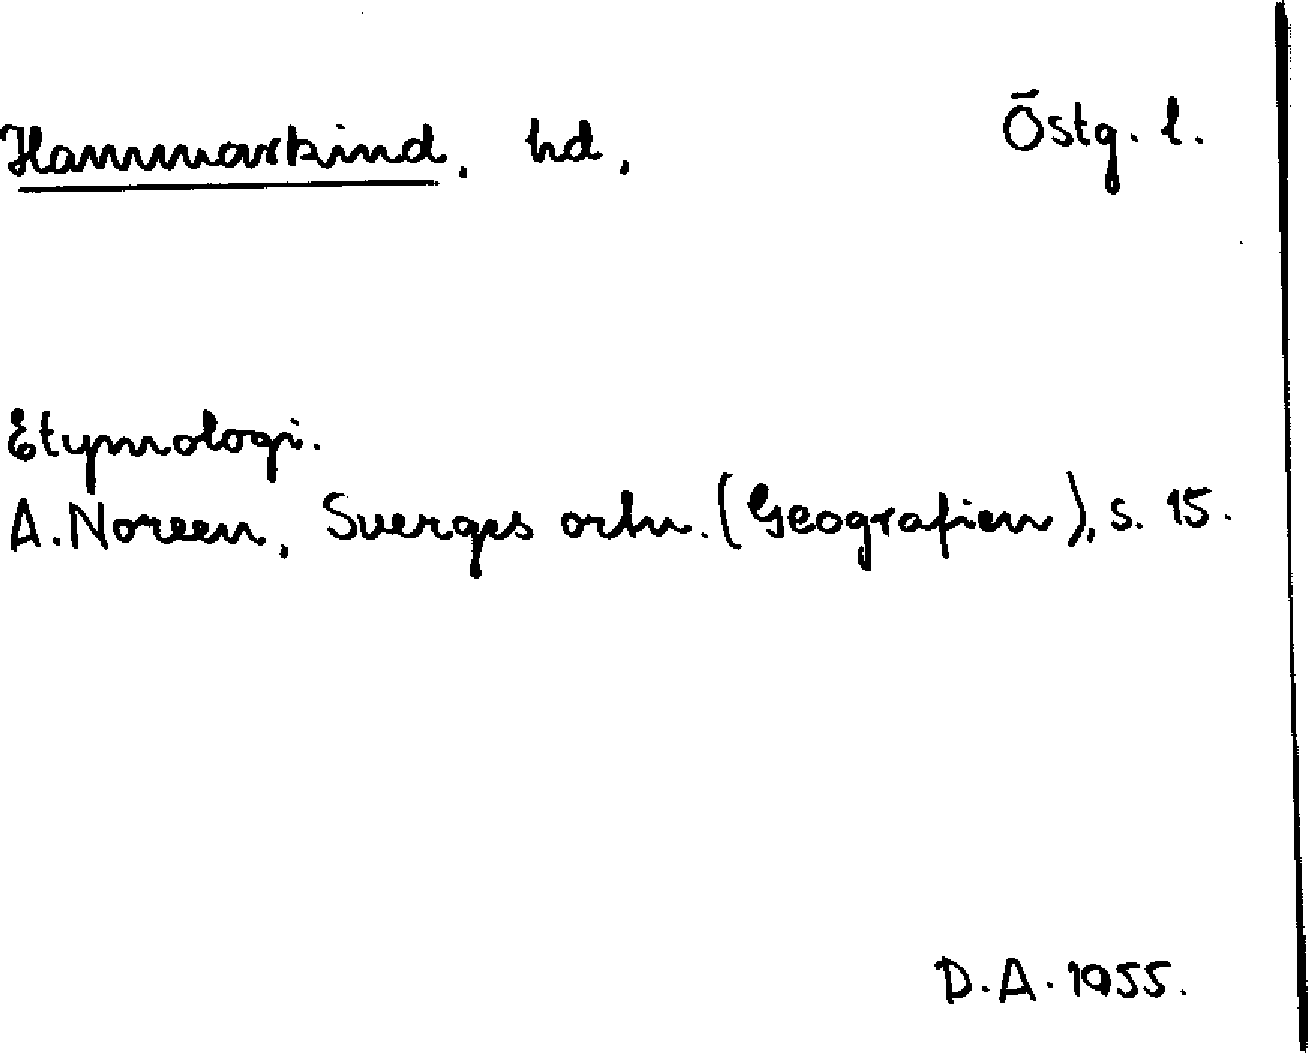 Hammarkind, hd, Östg. l.
Etymologi.
A. Noreen, Sverges ortn. (Geografien), s. 15.
D.A. 1955.